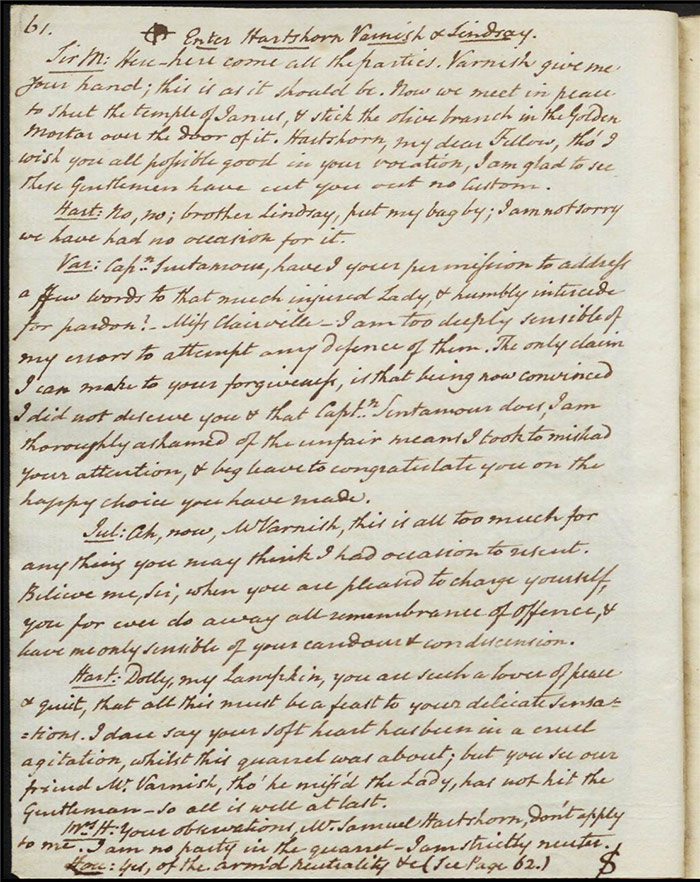 61.
Enter Hartshorn Varnish & Lindsay.
Sir M: Here - here come all the parties. Varnish give me
your hand; this is as it should be. Now we meet in peace
to shut the temple of Janus, & stick the olive branch in the Golden
Mortar over the door of it. Hartshorn, my dear Fellow, tho' I
wish you all possible good in your vocation, I am glad to see
these Gentlemen have cut you out no Custom.
Hart: No, no; brother Lindsay, put my bag by; I am not sorry
we have had no occasion for it.
Var: Cap.n Sentamour, have I your permission to address
a few words to that much injured Lady, & humbly intercede
for pardon? - Miss Clairville - I am too deeply sensible of
my errors to attempt any defence of them. The only claim
I can make to your forgiveness, is that being now convinced
I did not deserve you & that Capt.n Sentamour does, I am
thoroughly ashamed of the unfair means I took to mislead
your attention, & beg leave to congratulate you on the
happy choice you have made.
Jul: Ah, now, Mr Varnish, this is all too much for
any thing you may think I had occasion to resent.
Believe me, Sir, when you are pleased to charge yourself,
you for ever do away all remembrance of offence, &
leave me only sensible of your candour & condiscension.
Hart: Dolly, my Lampkin, you are such a lover of peace
& quiet, that all this must be a feast to your delicate sensa=
=tions. I dare say your soft heart has been in a cruel
agitation, whilst this quarrel was about; but you see our
friend Mr. Varnish, tho' he miss'd the Lady, has not hit the
Gentleman - so all is well at last.
Mrs H: Your observations, Mr. Samuel Hartshorn, don't apply
to me. I am no party in the quarrel - I am strictly neuter.
Hon: Yes, of the arm'd neutrality &c (See Page 62.)